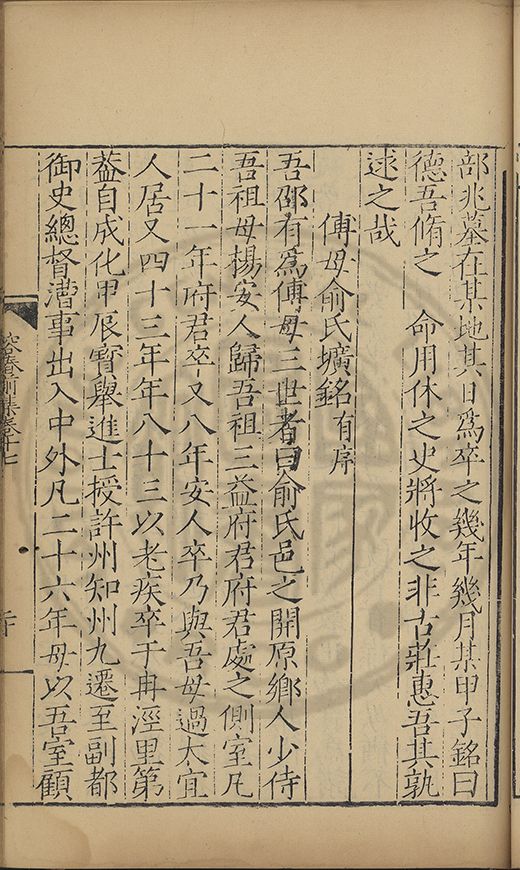 部兆墓在某地其日爲卒之幾年幾月某甲子銘曰
德吾脩之　命用休之史將收之非古莊惠吾其孰
逑之哉
傅母俞氏壙銘有序
吾邵有爲傅母三世者曰俞氏邑之開原鄉人少侍
吾祖母楊安人歸吾祖三益府君府君處之側室凡
二十一年府君卒又八年安人卒乃與吾母過太宜
人居又四十三年年八十三以老疾卒于冉涇里第
葢自成化甲辰寳舉進士授許州知州九遷至副都
御史總督漕事出入中外凡二十六年母以吾室顧
容春前集卷十七